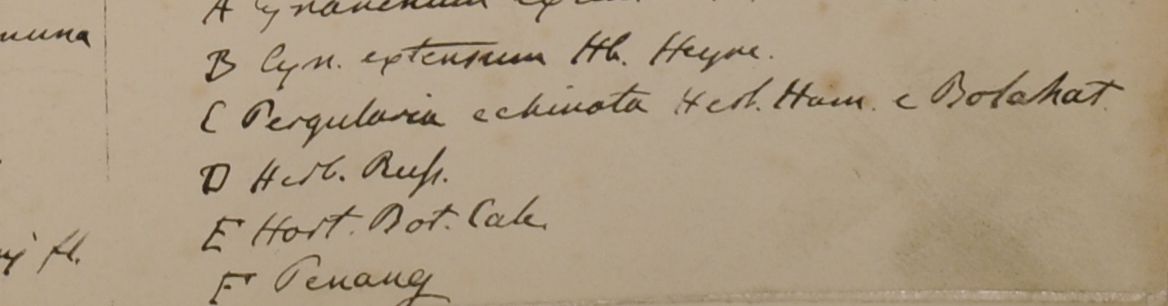 A Cynanchum
muna
B Cyn. extensum Hb. Heyne.
C Pergularia echinata Herb. Ham. e Bolahat
D Herb. Russ.
E Hort. Bot. Calc.
fl.
F Penang